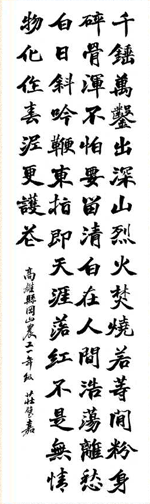 千錘萬鑿出深山烈火焚燒若等閒粉身
碎骨渾不怕要留清白在人間浩蕩離愁
白日斜吟鞭東指即天涯落紅不是無情
物化作春泥更護花
高雄縣岡山農工一年級 莊嘉